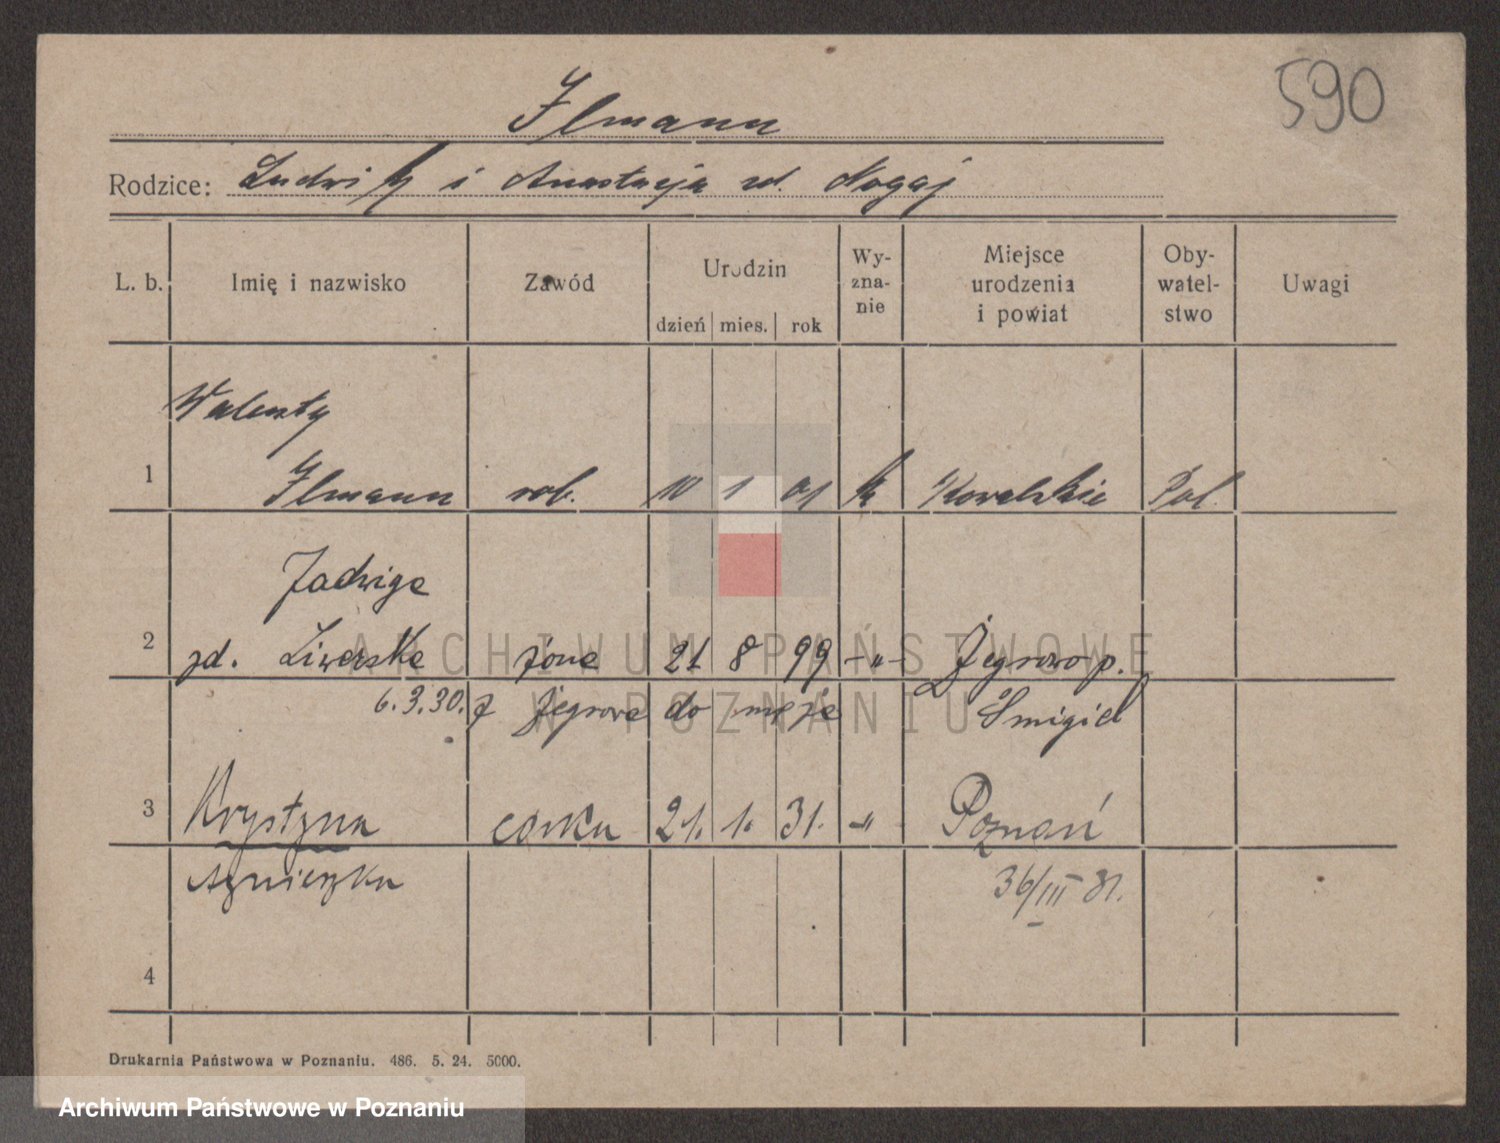 590
Ilmann
Rodzice: Ludwik i Anastazja zd. Nogaj
L. b. Imię i nazwisko Zawód Urodzin dzień mies. rok Wy-zna-nie Miejsce urodzenia i powiat Oby-watel-stwo Uwagi
Walenty
1 Ilmann rob. 10 1 01 k Kowalskie Pol.
Jadwiga
2 zd. Ziwerska żona 21 8 99 -"- Żegrowo p.
6.3.30. z Żegrowa do męża Śmigiel
3 Krystyna córka 21. 1. 31. -" Poznań
Agnieszka 36/III 31.
4
Drukarnia Państwowa w Poznaniu. 486. 5. 24. 5000.
ARCHIWUM PAŃSTWOWE
W POZNANIU
Archiwum Państwowe w Poznaniu